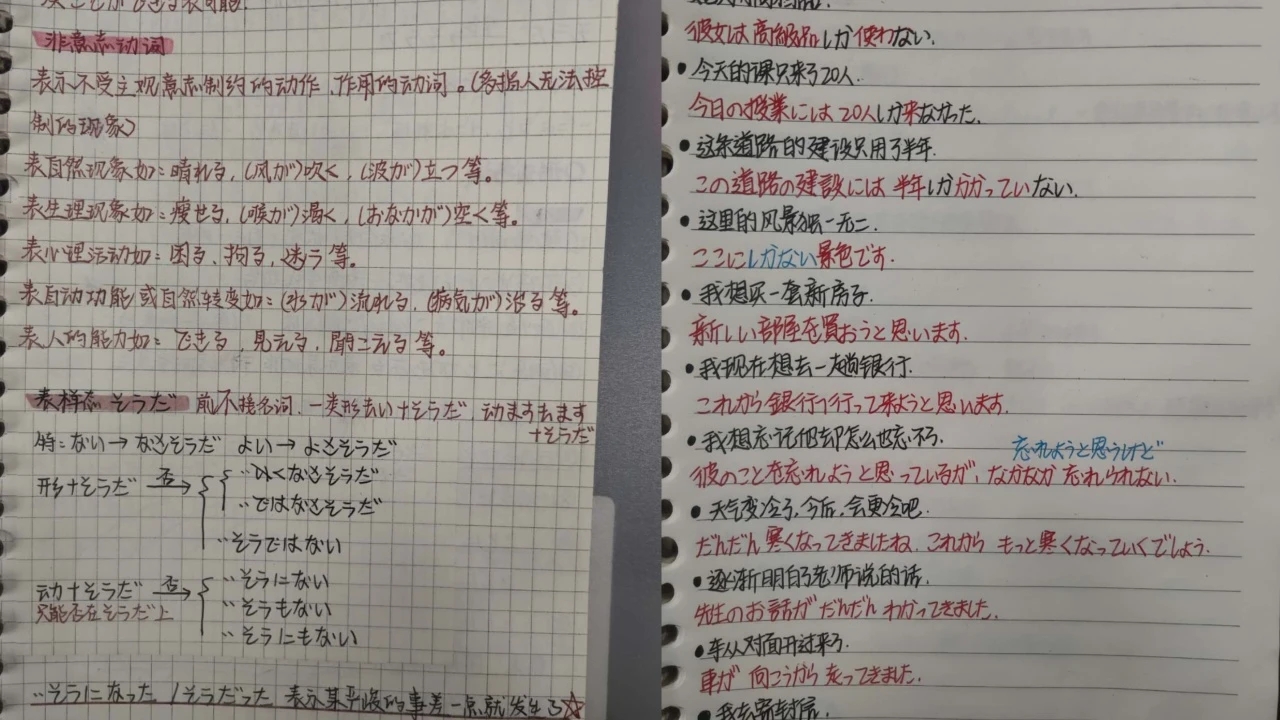 非意志动词
表示不受主观意志制约的动作、作用的动词。(多指人无法控
制的现象)
表自然现象如：晴れる，(风が)吹く，(波が)立つ等。
表生理现象如：瘦せる，(喉が)渴く，(おなかが)空く等。
表心理活动如：困る、拘る、迷う等。
表自动功能或自然转变如：(水が)流れる，(病気が)治る等。
表人的能力如：できる，见える，聞こえる等。
表样态 そうだ 前不接名词、一类形去い+そうだ，动ます去ます
+そうだ
特：ない→なさそうだ よい→よさそうだ
形+そうだ 否→
‥いくなさそうだ
‥ではなさそうだ
‥そうではない
动+そうだ 否→
只能否在そうだ上
‥そうにない
‥そうもない
‥そうにもない
‥そうになった/そうだった 表示某严峻的事差一点就发生了☆
彼女は高級品しか使わない.
• 今天的课只来了20人.
今日の授業には20人しか来なかった.
• 这条道路的建设只用了半年.
この道路の建設には 半年しかかかっていない.
• 这里的风景独一无二.
ここにしかない景色です.
• 我想买一套新房子.
新しい部屋を買おうと思います.
• 我现在想去一趟银行.
これから銀行へ行って来ようと思います.
• 我想忘记他却怎么也忘不了.
忘れようと思うけど
彼のことを忘れようと思っているが, なかなか忘れられない.
• 天气变冷了,今后,会更冷吧.
だんだん寒くなってきましたね. これから もっと寒くなっていくでしょう.
• 逐渐明白了老师说的话.
先生のお話が だんだん わかってきました.
• 车从对面开过来了.
車が 向こうから 走ってきました.
• 我去寄封信.